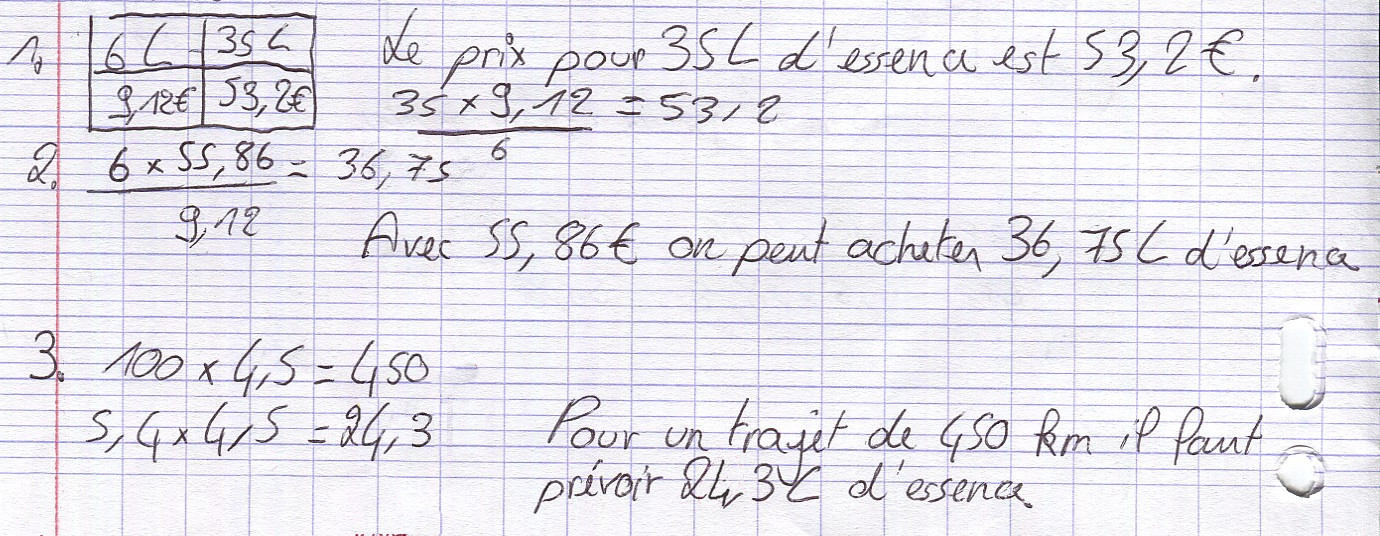 1. 6L 35L Le prix pour 35L d'essence est 53,2€.
9,12€ 53,2€ 35 × 9,12 = 53,2
6
2. 6 × 55,86 = 36,75
9,12
Avec 55,86€ on peut acheter 36,75L d'essence
3. 100 × 4,5 = 450
5,4 × 4,5 = 24,3 Pour un trajet de 450 km il faut
prévoir 24,3L d'essence.